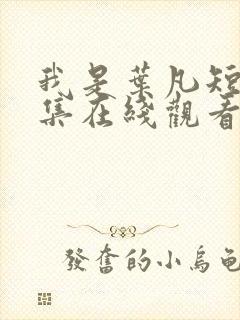 我是葉凡短
集在綫觀看
發奮的小烏龜